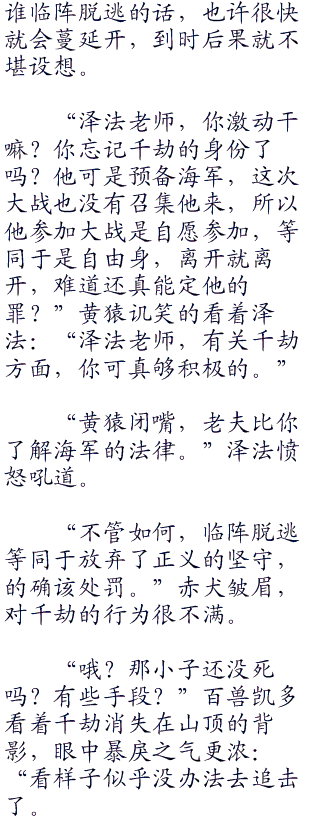 谁临阵脱逃的话，也许很快
就会蔓延开，到时后果就不
堪设想。
“泽法老师，你激动干
嘛？你忘记千劫的身份了
吗？他可是预备海军，这次
大战也没有召集他来，所以
他参加大战是自愿参加，等
同于是自由身，离开就离
开，难道还真能定他的
罪？”黄猿讥笑的看着泽
法：“泽法老师，有关千劫
方面，你可真够积极的。”
“黄猿闭嘴，老夫比你
了解海军的法律。”泽法愤
怒吼道。
“不管如何，临阵脱逃
等同于放弃了正义的坚守，
的确该处罚。”赤犬皱眉，
对千劫的行为很不满。
“哦？那小子还没死
吗？有些手段？”百兽凯多
看着千劫消失在山顶的背
影，眼中暴戾之气更浓：
“看样子似乎没办法去追击
了。